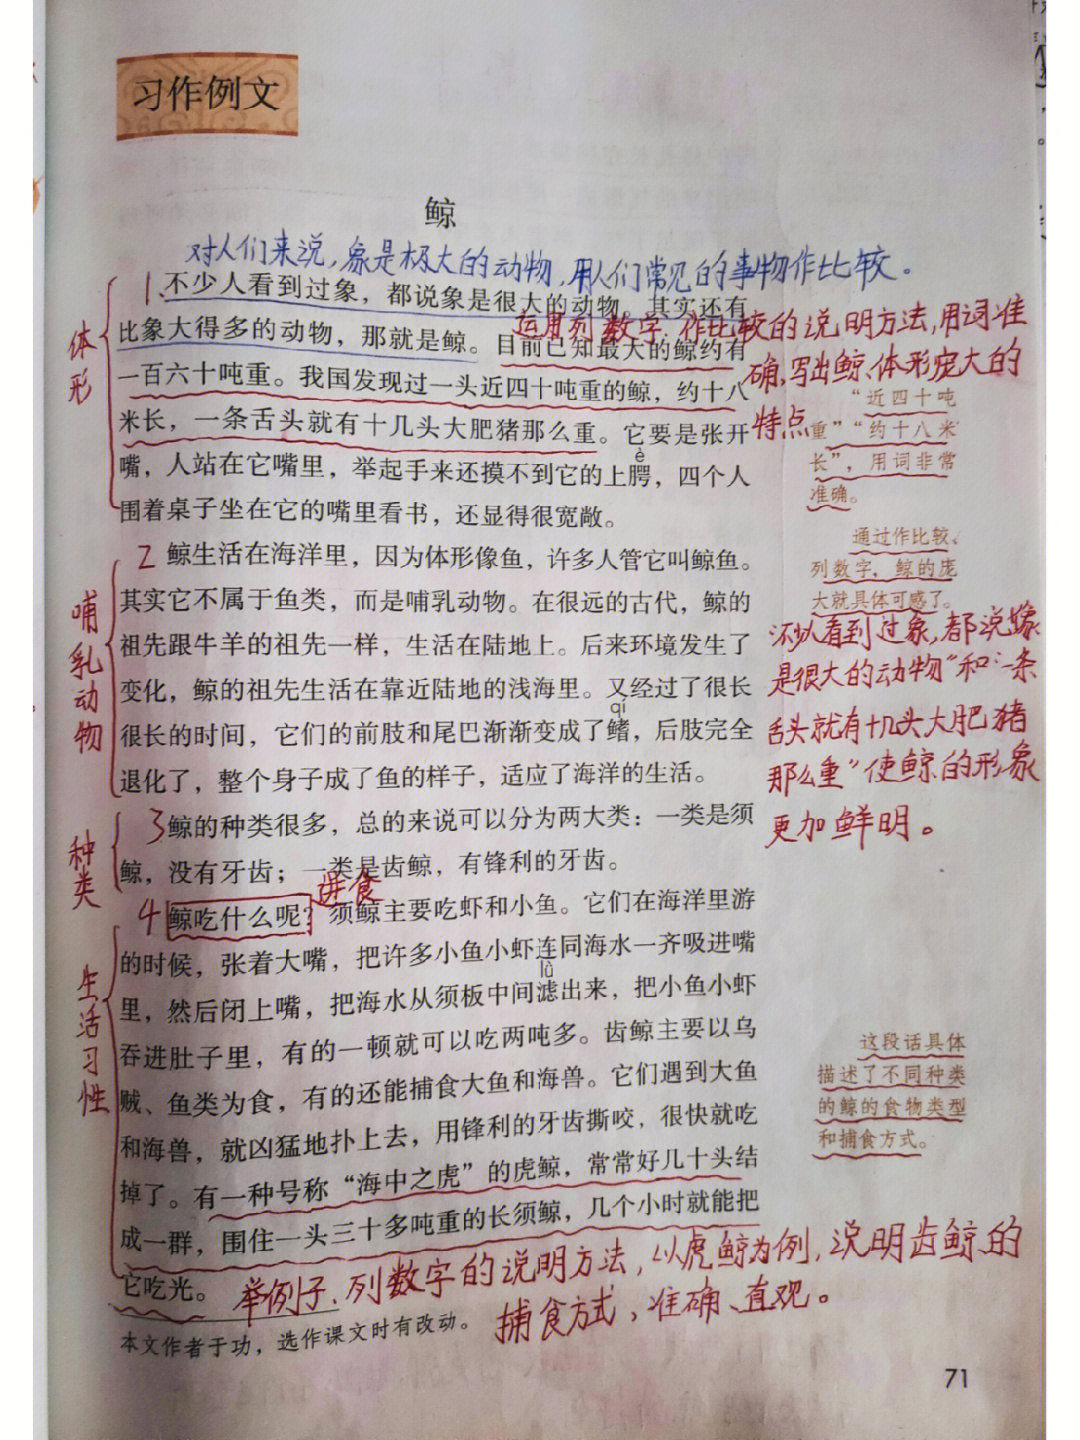 习作例文
鲸
对人们来说，象是极大的动物，用人们常见的事物作比较。
体形
1、不少人看到过象，都说象是很大的动物。其实还有
比象大得多的动物，那就是鲸。目前已知最大的鲸约有
一百六十吨重。我国发现过一头近四十吨重的鲸，约十八
米长，一条舌头就有十几头大肥猪那么重。它要是张开
è
嘴，人站在它嘴里，举起手来还摸不到它的上腭，四个人
围着桌子坐在它的嘴里看书，还显得很宽敞。
运用列数字、作比较的说明方法，用词准
确，写出鲸体形庞大的
特点
“近四十吨
重”“约十八米
长”，用词非常
准确。
通过作比较、
列数字，鲸的庞
大就具体可感了。
哺乳动物
2 鲸生活在海洋里，因为体形像鱼，许多人管它叫鲸鱼。
其实它不属于鱼类，而是哺乳动物。在很远的古代，鲸的
祖先跟牛羊的祖先一样，生活在陆地上。后来环境发生了
变化，鲸的祖先生活在靠近陆地的浅海里。又经过了很长
qí
很长的时间，它们的前肢和尾巴渐渐变成了鳍，后肢完全
退化了，整个身子成了鱼的样子，适应了海洋的生活。
不少人看到过象，都说象
是很大的动物”和“一条
舌头就有十几头大肥猪
那么重”使鲸的形象
更加鲜明。
种类
3 鲸的种类很多，总的来说可以分为两大类：一类是须
鲸，没有牙齿；一类是齿鲸，有锋利的牙齿。
进食
生活习性
4 鲸吃什么呢？须鲸主要吃虾和小鱼。它们在海洋里游
的时候，张着大嘴，把许多小鱼小虾连同海水一齐吸进嘴
lǜ
里，然后闭上嘴，把海水从须板中间滤出来，把小鱼小虾
吞进肚子里，有的一顿就可以吃两吨多。齿鲸主要以乌
贼、鱼类为食，有的还能捕食大鱼和海兽。它们遇到大鱼
和海兽，就凶猛地扑上去，用锋利的牙齿撕咬，很快就吃
掉了。有一种号称“海中之虎”的虎鲸，常常好几十头结
成一群，围住一头三十多吨重的长须鲸，几个小时就能把
它吃光。
这段话具体
描述了不同种类
的鲸的食物类型
和捕食方式。
举例子、列数字的说明方法，以虎鲸为例，说明齿鲸的
捕食方式，准确、直观。
本文作者于功，选作课文时有改动。
71